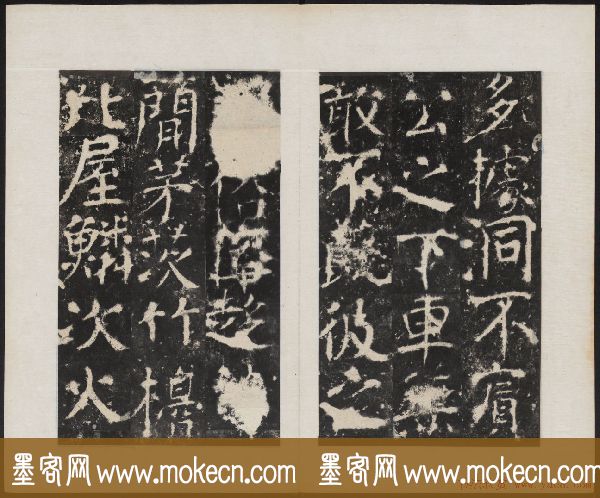 多據洞不賓
公之下車
敢不彼之
俗
間茅茨竹櫓
比屋鱗次火
墨客网 www.mokecn.com
墨客网 www.mokecn.com